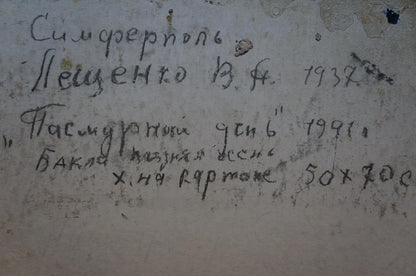 Симферполь
Лещенко В. А. 1937
"Пасмурный день" 1991.
Бакла поздняя осень
х. на картоне 50 x 70 с